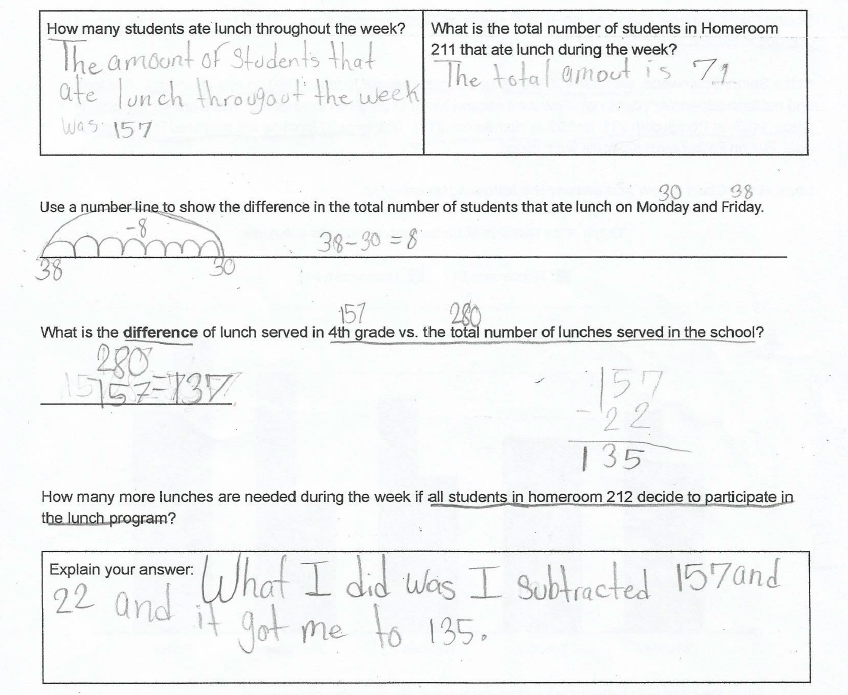 How many students ate lunch throughout the week?
The amount of students that
ate lunch througout the week
was 157
What is the total number of students in Homeroom
211 that ate lunch during the week?
The total amout is 71
30 38
Use a number line to show the difference in the total number of students that ate lunch on Monday and Friday.
-8
38 30
38-30=8
157 280
What is the difference of lunch served in 4th grade vs. the total number of lunches served in the school?
280
157=137
157
-22
135
How many more lunches are needed during the week if all students in homeroom 212 decide to participate in
the lunch program?
Explain your answer: What I did was I subtracted 157 and
22 and it got me to 135.